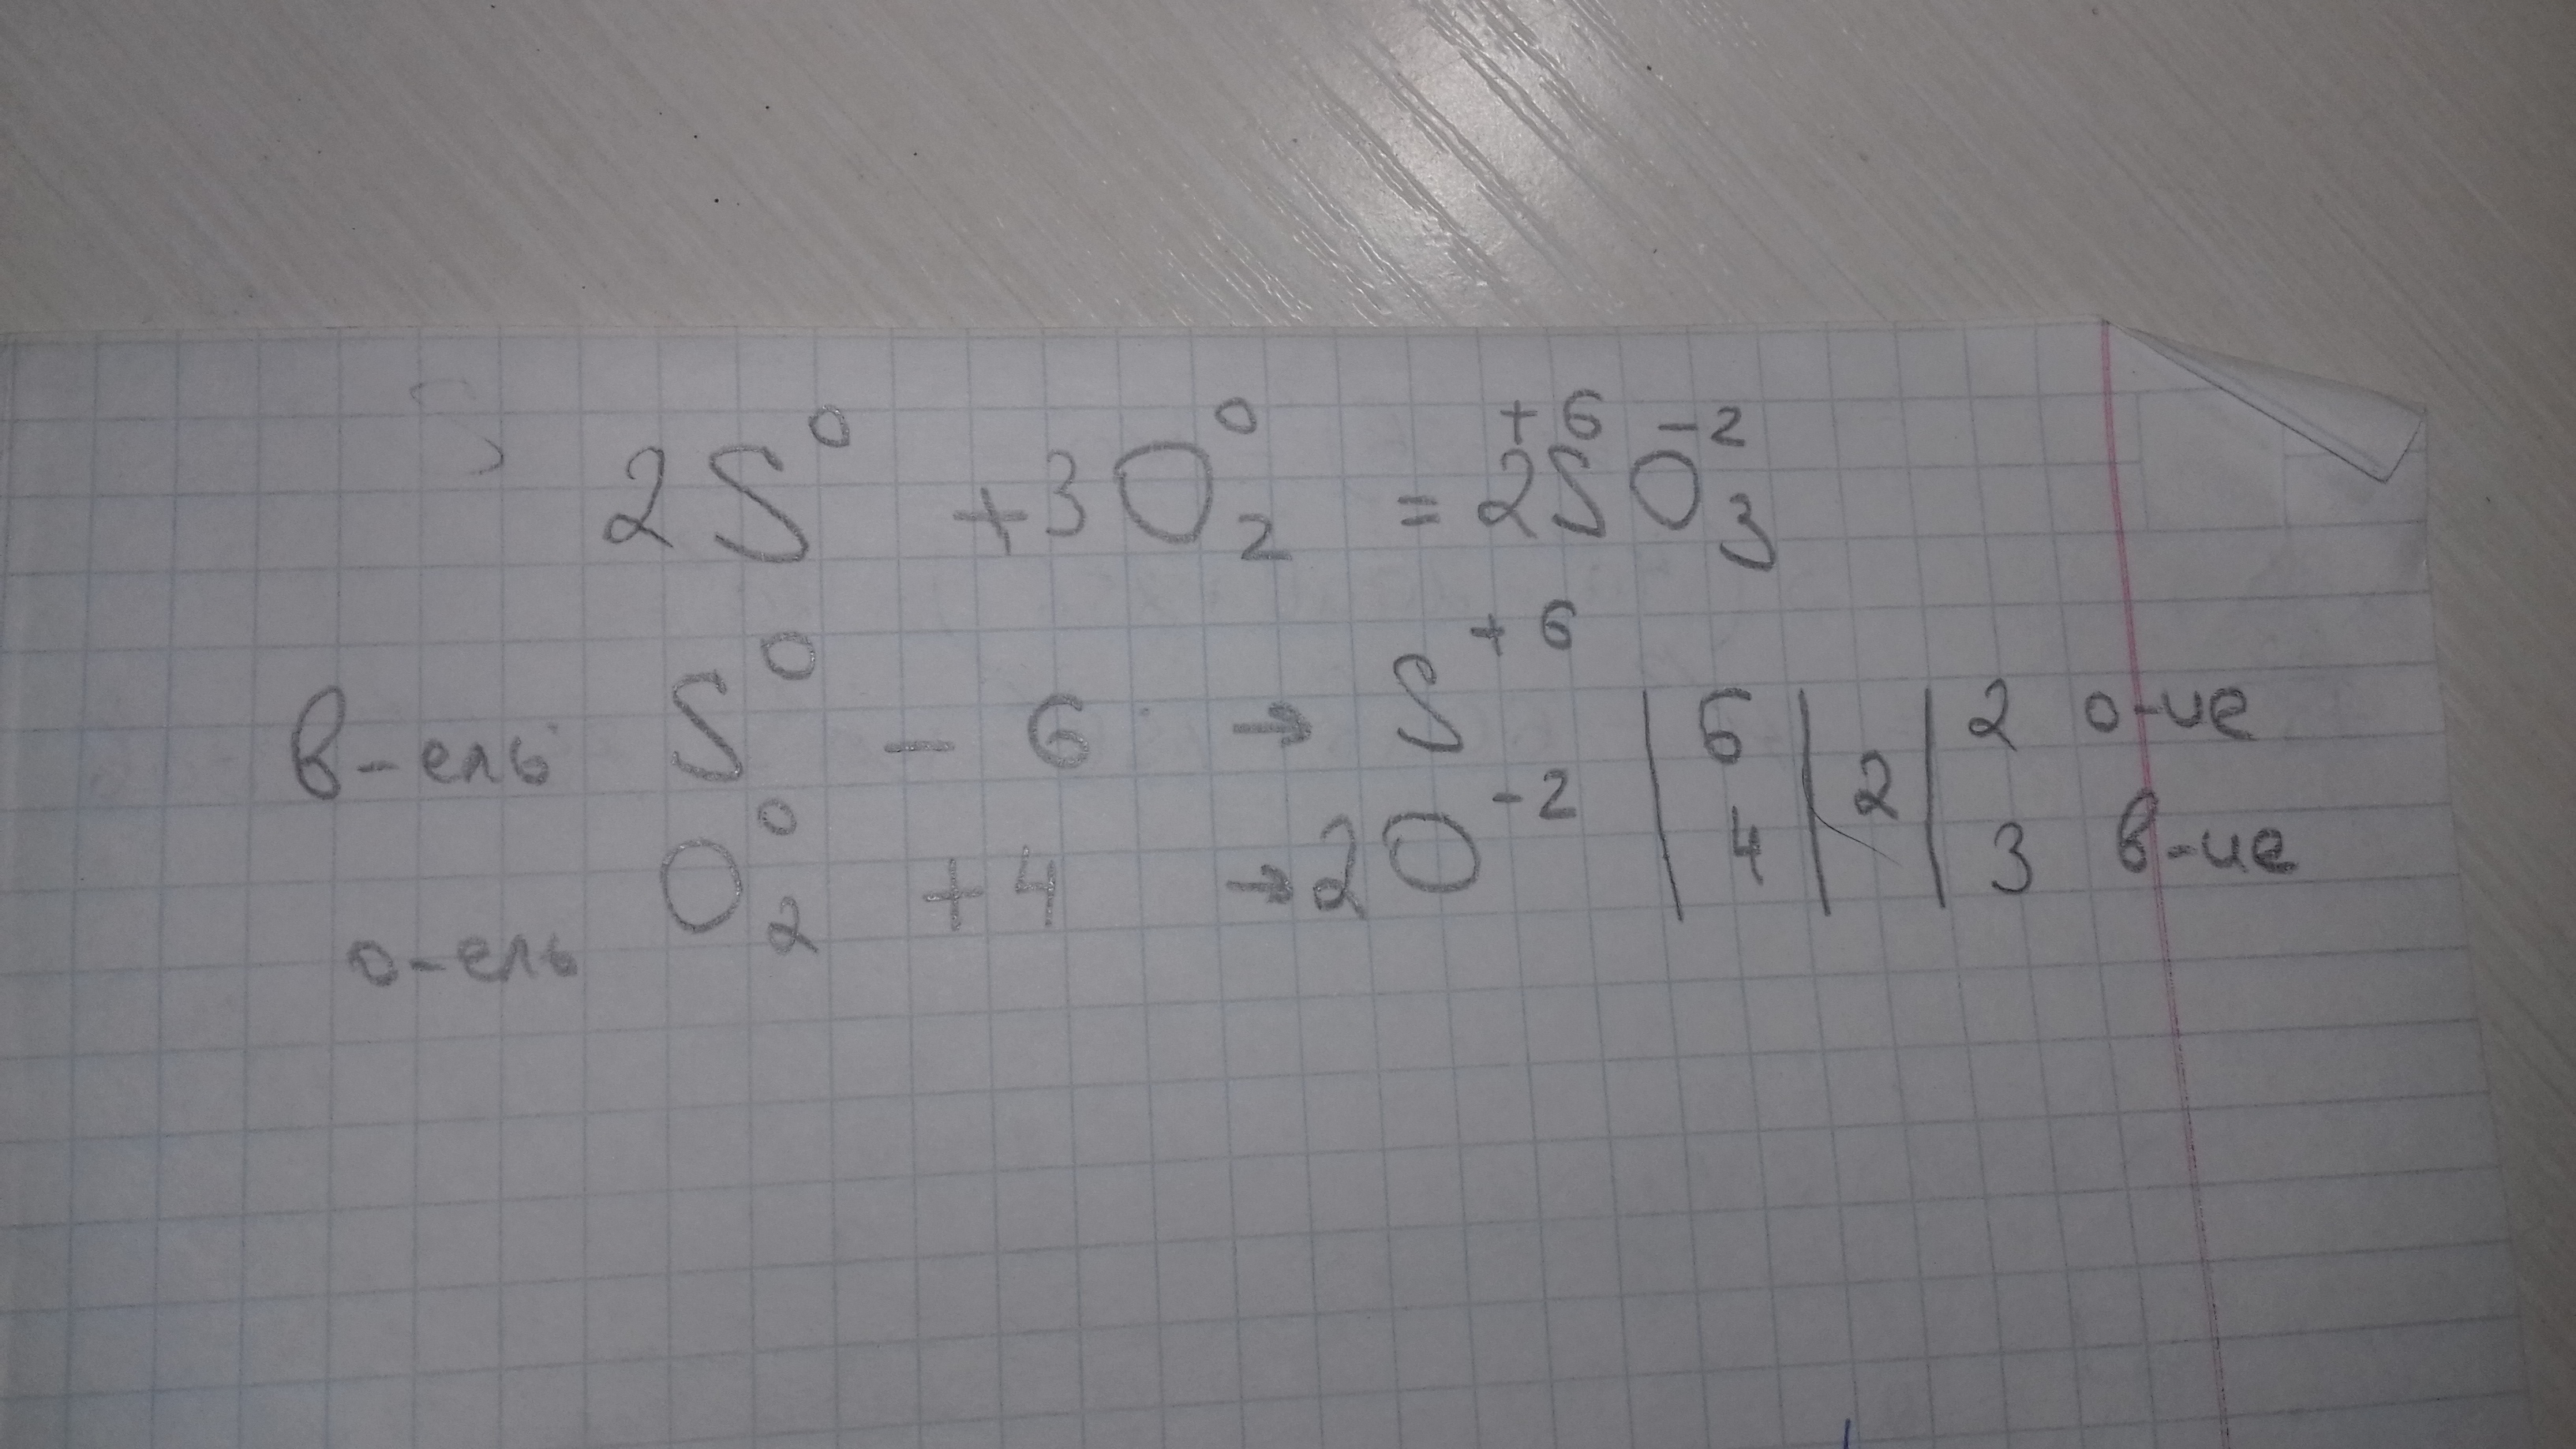 2S⁰ + 3O₂⁰ = 2S⁺⁶O₃⁻²
в-ель S⁰ - 6 → S⁺⁶ | 6 | 2 | 2 о-ие
о-ель O₂⁰ + 4 → 2O⁻² | 4 | | 3 в-ие